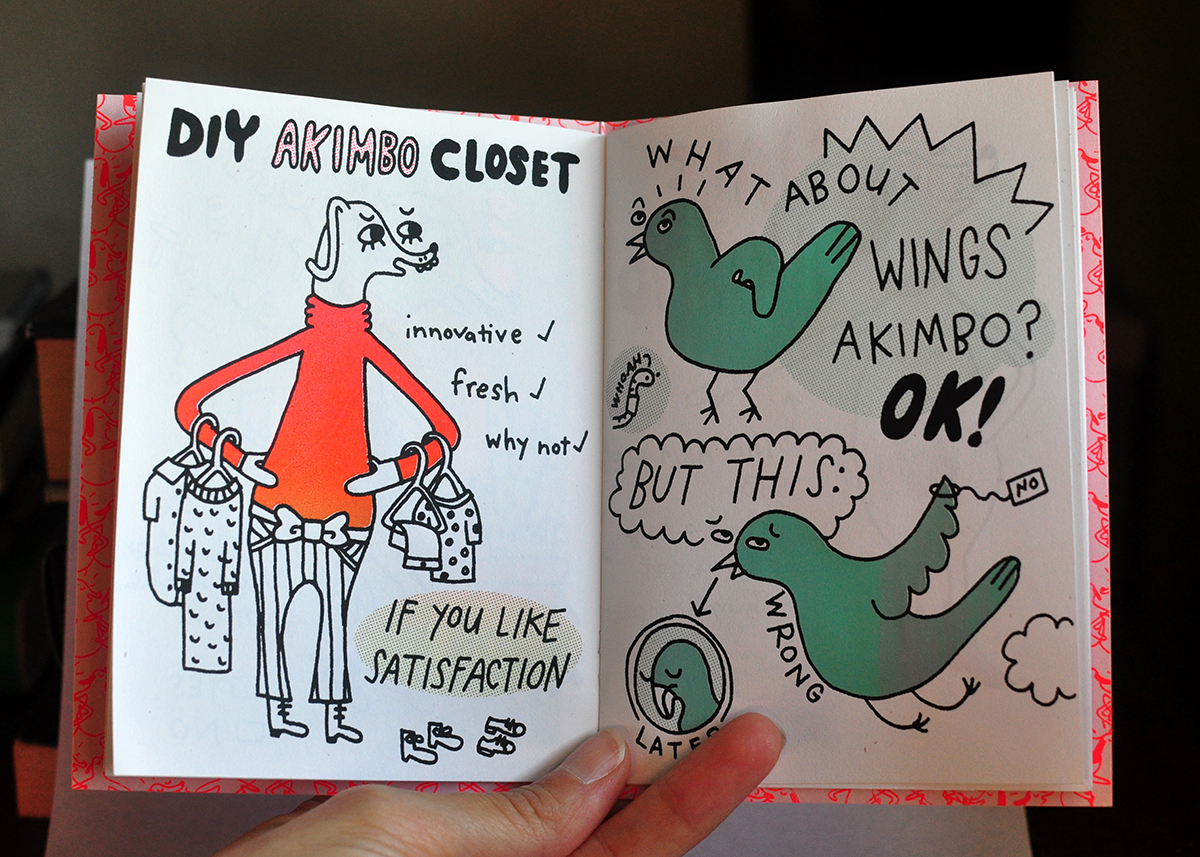 DIY AKIMBO CLOSET
innovative ✓
fresh ✓
why not ✓
IF YOU LIKE
SATISFACTION
WHAT ABOUT
WINGS
AKIMBO?
OK!
BUT THIS:
NO
WRONG